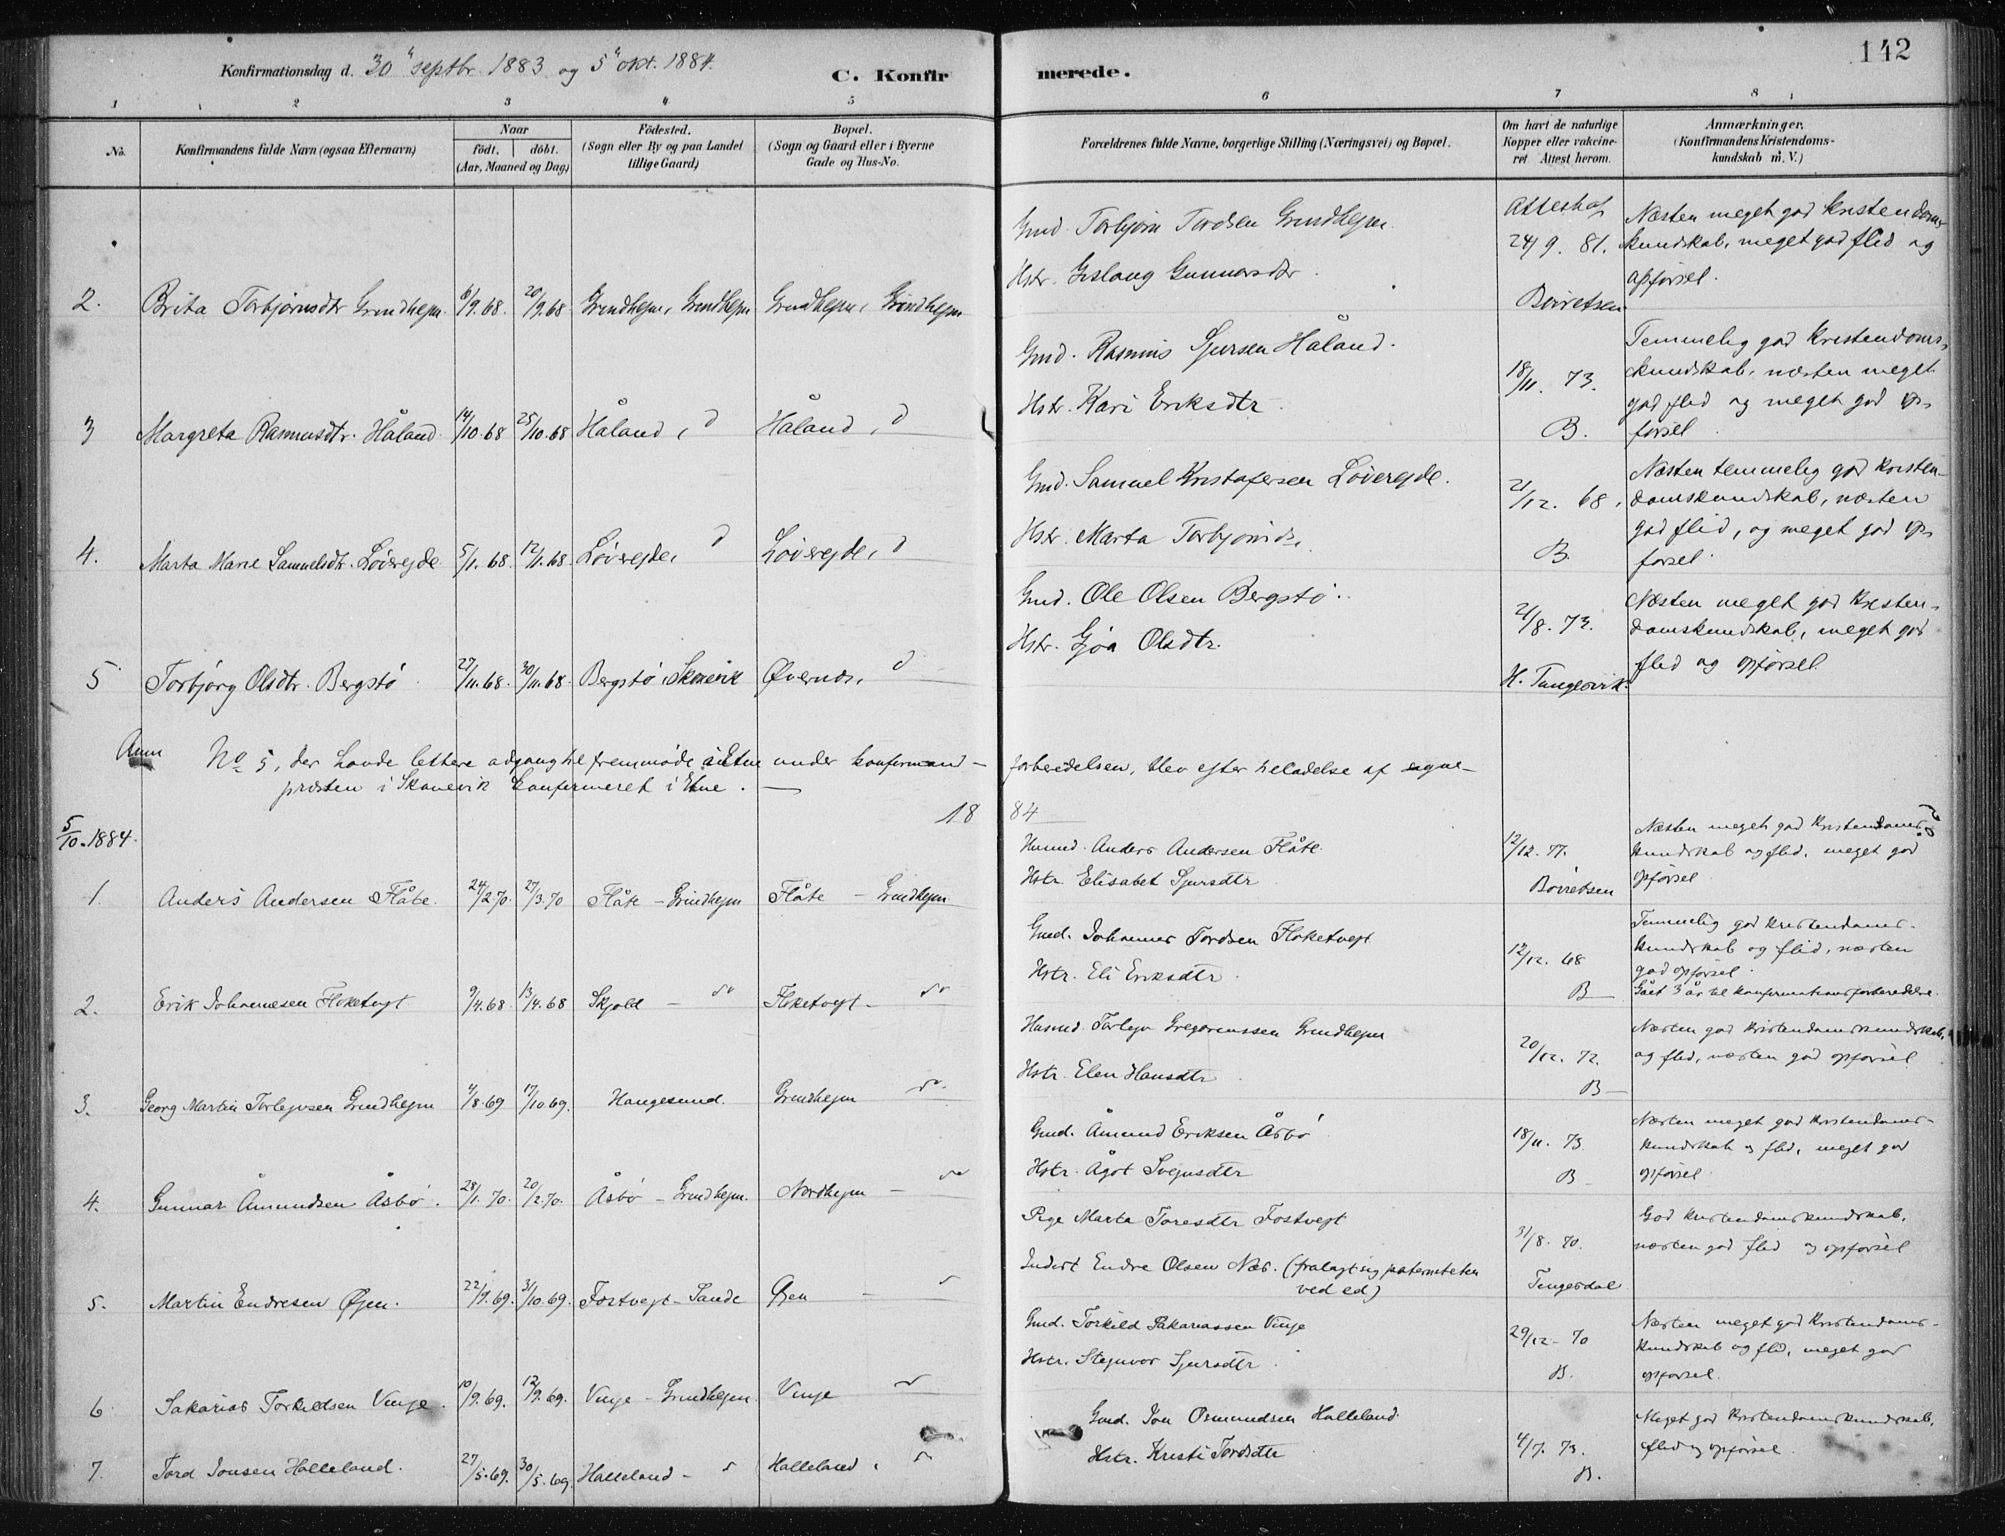 142
Konfirmationsdag d. 30" septbr. 1883 og 5" okt. 1884.
C. Konfir merede.
1 2 3 4 5 6 7 8
No. Konfirmandens fulde Navn (ogsaa Efternavn)
Naar
födt. döbt.
(Aar, Maaned og Dag)
Födested.
(Sogn eller By og paa Landet
tillige Gaard)
Bopæl.
(Sogn og Gaard eller i Byerne
Gade og Hus-No.
Forældrenes fulde Navne, borgerlige Stilling (Næringsvei) og Bopæl.
Om havt de naturlige
Kopper eller vakcine-
ret Attest herom.
Anmærkninger.
(Konfirmandens Kristendoms-
kundskab m. V.)
2. Brita Torbjørnsdtr Grindhejm 6/9.68. 20/9.68 Grindhejm, Grindhejm Grindhejm, Grindhejm
Gmd. Torbjørn Tordsen Grindhejm.
Hstr. Gunnarsdtr.
24/9. 81.
Næsten meget god kristendoms-
kundskab, meget god flid og
opførsel.
3 Margreta Rasmusdtr. Håland 14/10.68 25/10.68 Håland, d Håland, d
Gmd. Rasmus Sjursen Håland.
Hstr. Kari Eriksdtr.
18/11. 73.
B.
Temmelig god kristendoms-
kundskab, næsten meget
god flid og meget god op-
førsel.
4. Marta Marie Samuelsdtr. Løverejde 5/1.68. 12/1.68. Løverejde, d Løverejde, d
Gmd. Samuel Kristofersen Løverejde.
Hstr. Marta
21/12. 68.
B.
Næsten temmelig god kristen-
domskundskab, næsten
god flid, og meget god op-
førsel.
5 Torbjørg Olsdtr. Bergstø 27/11.68. 30/11.68. Bergstø, Skonevik Øvernæs, d
Gmd. Ole Olsen Bergstø.
Hstr. Gjøa Olsdtr.
21/8. 73.
Næsten meget god kristen-
domskundskab, meget god
flid og opførsel
Anm No 5, der havde lettere adgang til fremmøde i Etne under konfirmand-forberedelsen, blev efter tiladelse af sogne-
præsten i Skonevik konfirmeret i Etne.
1884
5/10. 1884.
1. Anders Andersen Flåte. 24/2.70. 27/3.70 Flåte - Grindhejm Flåte - Grindhejm
Husmd. Anders Andersen Flåte.
Hstr. Elisabet Sjursdtr
12/12. 77.
Næsten meget god kristendoms-
kundskab og flid, meget god
opførsel
2. Erik Johannesen Floketvejt 9/4.68 13/4.68 Skjold - do Floketvejt - do
Gmd. Johannes Tordsen Floketvejt
Hstr. Eli Eriksdtr.
12/12. 68
B
Temmelig god kristendoms-
kundskab og flid, næsten
god opførsel.
Gået 3 år til konfirmationsforberedelse.
3. Georg Martin Torlejvsen Grindhejm 4/8.69 17/10.69. Haugesund. Grindhejm do
Husmd Torlejv Gregoriussen Grindhejm
Hstr. Elen Hansdtr
20/12. 72.
B
Næsten god kristendomskundskab,
og flid, næsten god opførsel
4. Gunnar Åmundsen Åsbø. 28/1.70. 20/2.70. Åsbø - Grindhejm. Nordhejm - do
Gmd. Åmund Eriksen Åsbø
Hstr. Ågot Svejnsdtr
18/11. 73
B
Næsten meget god kristendoms-
kundskab og flid, meget god
opførsel.
5. Martin Endresen Øjen. 22/9.69. 31/10.69. Fostvejt - Sande Øjen -
Pige Marta Toresdtr Fostvejt
Inderst Endre Olsen Næs. (fralagt sig paterniteten
ved ed)
31/8. 70.
God kristendomskundskab,
næsten god flid og opførsel
6 Sakarias Torkildsen Vinje. 10/9.69. 12/9.69. Vinje - Grindhejm. Vinje
Gmd. Torkild Sakariassen Vinje
Hstr. Stejnvor Sjursdtr.
29/12 - 70
B.
Næsten meget god kristendoms-
kundskab og flid, meget god
opførsel.
7. Tord Jonsen Halleland. 27/5.69. 30/5.69 Halleland - Halleland,
Gmd. Jon Osmundsen Halleland.
Hstr. Kristi Tordsdtr
4/7. 73.
B.
Meget god kristendomskundskab,
flid og opførsel.